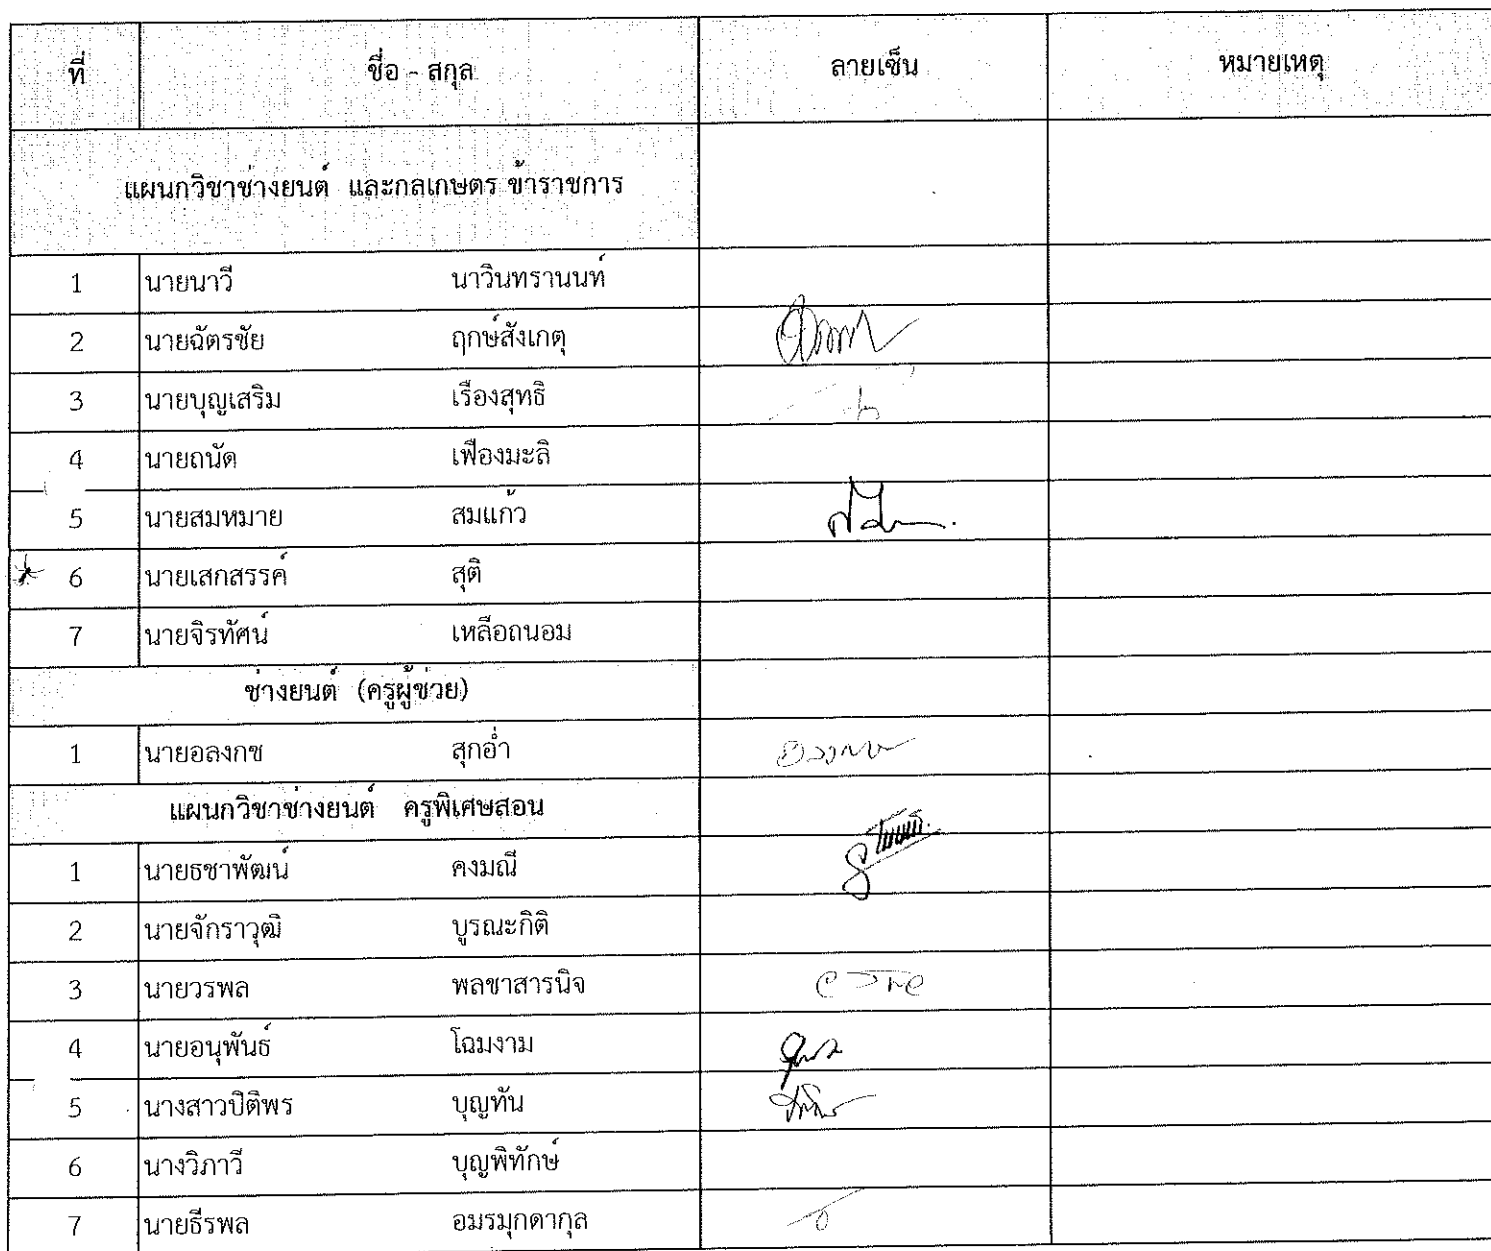 ที่ ชื่อ - สกุล ลายเซ็น หมายเหตุ
แผนกวิชาช่างยนต์ และกลเกษตร ข้าราชการ
1 นายนาวี นาวินทรานนท์
2 นายฉัตรชัย ฤกษ์สังเกตุ
3 นายบุญเสริม เรืองสุทธิ
4 นายถนัด เฟืองมะลิ
5 นายสมหมาย สมแก้ว
6 นายเสกสรรค์ สุติ
7 นายจิรทัศน์ เหลือถนอม
ช่างยนต์ (ครูผู้ช่วย)
1 นายอลงกช สุกอ่ำ
แผนกวิชาช่างยนต์ ครูพิเศษสอน
1 นายธชาพัฒน์ คงมณี
2 นายจักราวุฒิ บูรณะกิติ
3 นายวรพล พลชาสารนิจ
4 นายอนุพันธ์ โฉมงาม
5 นางสาวปิติพร บุญทัน
6 นางวิภาวี บุญพิทักษ์
7 นายธีรพล อมรมุกดากุล